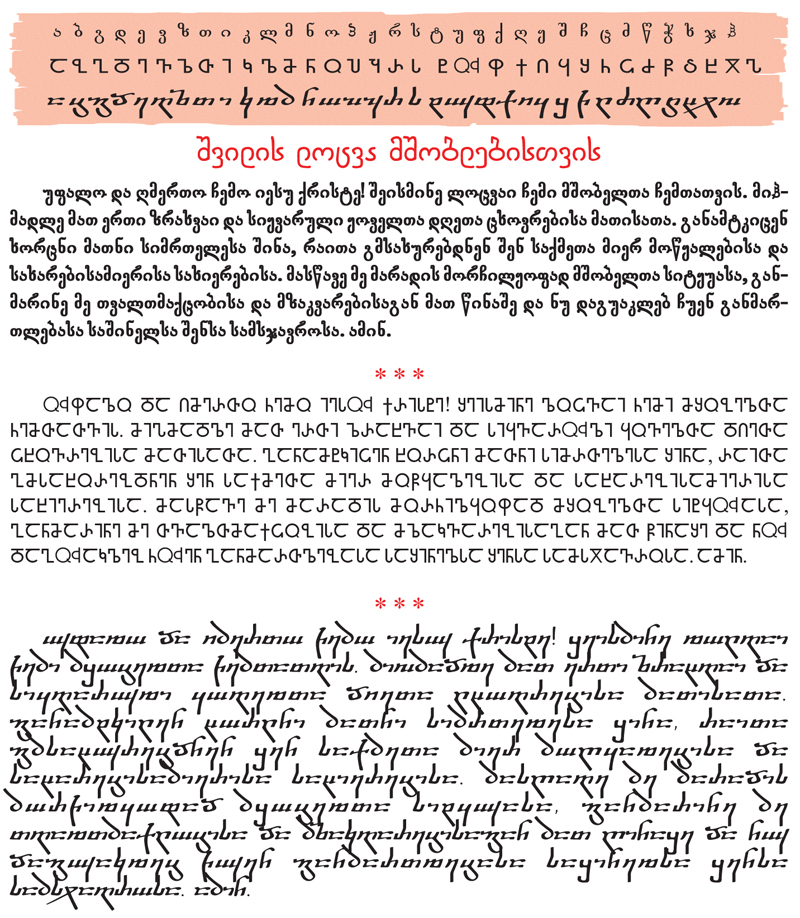 ა ბ გ დ ე ვ ზ თ ი კ ლ მ ნ ო პ ჟ რ ს ტ უ ფ ქ ღ ყ შ ჩ ც ძ წ ჭ ხ ჯ ჰ
Ⴀ Ⴁ Ⴂ Ⴃ Ⴄ Ⴅ Ⴆ Ⴇ Ⴈ Ⴉ Ⴊ Ⴋ Ⴌ Ⴍ Ⴎ Ⴏ Ⴐ Ⴑ Ⴒ ႭჃ Ⴔ Ⴕ Ⴖ Ⴗ Ⴘ Ⴙ Ⴚ Ⴛ Ⴜ Ⴝ Ⴞ Ⴟ Ⴠ
ⴀ ⴁ ⴂ ⴃ ⴄ ⴅ ⴆ ⴇ ⴈ ⴉ ⴊ ⴋ ⴌ ⴍ ⴎ ⴏ ⴐ ⴑ ⴒ ⴓ ⴔ ⴕ ⴖ ⴗ ⴘ ⴙ ⴚ ⴛ ⴜ ⴝ ⴞ ⴟ ⴠ
შვილის ლოცვა მშობლებისთვის
უფალო და ღმერთო ჩემო იესუ ქრისტე! შეისმინე ლოცვაი ჩემი მშობელთა ჩემთათვის. მიჰ-
მადლე მათ ერთი ზრახვაი და სიყვარული ყოველთა დღეთა ცხოვრებისა მათისათა. განამტკიცენ
ხორცნი მათნი სიმრთელესა შინა, რაითა გმსახურებდნენ შენ საქმეთა მიერ მოწყალებისა და
სახარებისამიერისა სახიერებისა. მასწავე მე მარადის მორჩილყოფად მშობელთა სიტყუასა, გან-
მარინე მე თვალთმაქცობისა და მზაკვარებისაგან მათ წინაშე და ნუ დაგუაკლებ ჩუენ განმარ-
თლებასა საშინელსა შენსა სამსჯავროსა. ამინ.
* * *
ႭჃႴႠႪႭ ႣႠ ႶႫႤႰႧႭ ႹႤႫႭ ႨႤႱႭჃ ႵႰႨႱႲႤ! ႸႤႨႱႫႨႬႤ ႪႭႺႥႠႨ ႹႤႫႨ ႫႸႭႡႤႪႧႠ
ႹႤႫႧႠႧႥႨႱ. ႫႨႠႫႠႣႪႤ ႫႠႧ ႤႰႧႨ ႦႰႠႾႥႠႨ ႣႠ ႱႨႷႥႠႰႭჃႪႨ ႷႭႥႤႪႧႠ ႣႶႤႧႠ
ႺႾႭႥႰႤႡႨႱႠ ႫႠႧႨႱႠႧႠ. ႢႠႬႠႫႲႩႨႺႤႬ ႾႭႰႺႬႨ ႫႠႧႬႨ ႱႨႫႰႧႤႪႤႱႠ ႸႨႬႠ, ႰႠႨႧႠ
ႢႫႱႠႾႭჃႰႤႡႣႬႤႬ ႸႤႬ ႱႠႵႫႤႧႠ ႫႨႤႰ ႫႭႼႷႠႪႤႡႨႱႠ ႣႠ ႱႠႾႠႰႤႡႨႱႠႫႨႤႰႨႱႠ
ႱႠႾႨႤႰႤႡႨႱႠ. ႫႠႱႼႠႥႤ ႫႤ ႫႠႰႠႣႨႱ ႫႭႰႹႨႪႷႭႴႠႣ ႫႸႭႡႤႪႧႠ ႱႨႲႷႭჃႠႱႠ,
ႢႠႬႫႠႰႨႬႤ ႫႤ ႧႥႠႪႧႫႠႵႺႭႡႨႱႠ ႣႠ ႫႦႠႩႥႠႰႤႡႨႱႠႢႠႬ ႫႠႧ ႼႨႬႠႸႤ ႣႠ ႬႭჃ
ႣႠႢႭჃႠႩႪႤႡ ႹႭჃႤႬ ႢႠႬႫႠႰႧႪႤႡႠႱႠ ႱႠႸႨႬႤႪႱႠ ႸႤႬႱႠ ႱႠႫႱႿႠႥႰႭႱႠ. ႠႫႨႬ.
* * *
ⴓⴔⴀⴊⴍ ⴃⴀ ⴖⴋⴄⴐⴇⴍ ⴙⴄⴋⴍ ⴈⴄⴑⴓ ⴕⴐⴈⴑⴒⴄ! ⴘⴄⴈⴑⴋⴈⴌⴄ ⴊⴍⴚⴅⴀⴈ
ⴙⴄⴋⴈ ⴋⴘⴍⴁⴄⴊⴇⴀ ⴙⴄⴋⴇⴀⴇⴅⴈⴑ. ⴋⴈⴠⴋⴀⴃⴊⴄ ⴋⴀⴇ ⴄⴐⴇⴈ ⴆⴐⴀⴞⴅⴀⴈ ⴃⴀ
ⴑⴈⴗⴅⴀⴐⴓⴊⴈ ⴗⴍⴅⴄⴊⴇⴀ ⴃⴖⴄⴇⴀ ⴚⴞⴍⴅⴐⴄⴁⴈⴑⴀ ⴋⴀⴇⴈⴑⴀⴇⴀ.
ⴂⴀⴌⴀⴋⴒⴉⴈⴚⴄⴌ ⴞⴍⴐⴚⴌⴈ ⴋⴀⴇⴌⴈ ⴑⴈⴋⴐⴇⴄⴊⴄⴑⴀ ⴘⴈⴌⴀ, ⴐⴀⴈⴇⴀ
ⴂⴋⴑⴀⴞⴓⴐⴄⴁⴃⴌⴄⴌ ⴘⴄⴌ ⴑⴀⴕⴋⴄⴇⴀ ⴋⴈⴄⴐ ⴋⴍⴜⴗⴀⴊⴄⴁⴈⴑⴀ ⴃⴀ
ⴑⴀⴞⴀⴐⴄⴁⴈⴑⴀⴋⴈⴄⴐⴈⴑⴀ ⴑⴀⴞⴈⴄⴐⴄⴁⴈⴑⴀ. ⴋⴀⴑⴜⴀⴅⴄ ⴋⴄ ⴋⴀⴐⴀⴃⴈⴑ
ⴋⴍⴐⴙⴈⴊⴗⴍⴔⴀⴃ ⴋⴘⴍⴁⴄⴊⴇⴀ ⴑⴈⴒⴗⴓⴀⴑⴀ, ⴂⴀⴌⴋⴀⴐⴈⴌⴄ ⴋⴄ
ⴇⴅⴀⴊⴇⴋⴀⴕⴚⴍⴁⴈⴑⴀ ⴃⴀ ⴋⴆⴀⴉⴅⴀⴐⴄⴁⴈⴑⴀⴂⴀⴌ ⴋⴀⴇ ⴜⴈⴌⴀⴘⴄ ⴃⴀ ⴌⴓ
ⴃⴀⴂⴓⴀⴉⴊⴄⴁ ⴙⴓⴄⴌ ⴂⴀⴌⴋⴀⴐⴇⴊⴄⴁⴀⴑⴀ ⴑⴀⴘⴈⴌⴄⴊⴑⴀ ⴘⴄⴌⴑⴀ
ⴑⴀⴋⴑⴟⴀⴅⴐⴍⴑⴀ. ⴀⴋⴈⴌ.